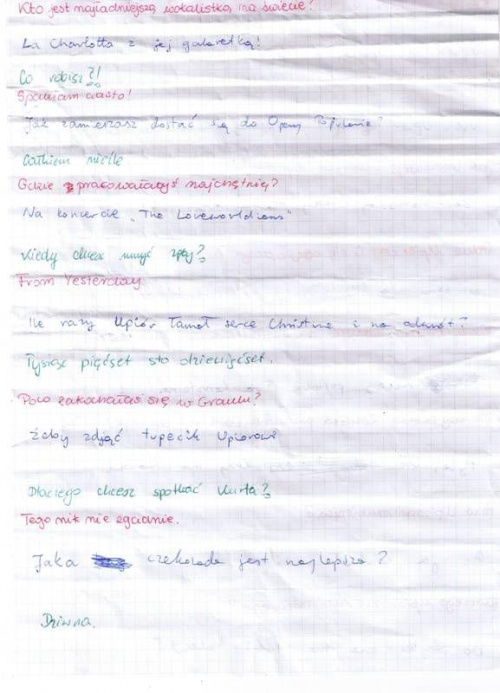 Kto jest najładniejszą wokalistką na świecie?
La Charlotta z jej galaretką!
Co robisz?!
Spalniam ciasto!
Jak zamierzasz dostać się do Opery
Całkiem nieźle
Gdzie pracowałabyś najchętniej?
Na koncercie "The Loveworldians"
Kiedy chcesz umyć zęby?
From Yesterday
Ile razy Upiór łamał serce Christine i na odwrót?
Tysiąc pięćset sto dziewięćset.
Poco zakochałaś się w Graulu?
żeby zdjąć tupecik Upiorowi
Dlaczego chcesz spotkać Kurta?
Tego nik nie zgadnie.
Jaka czekolada jest najlepsza?
Dziwna.